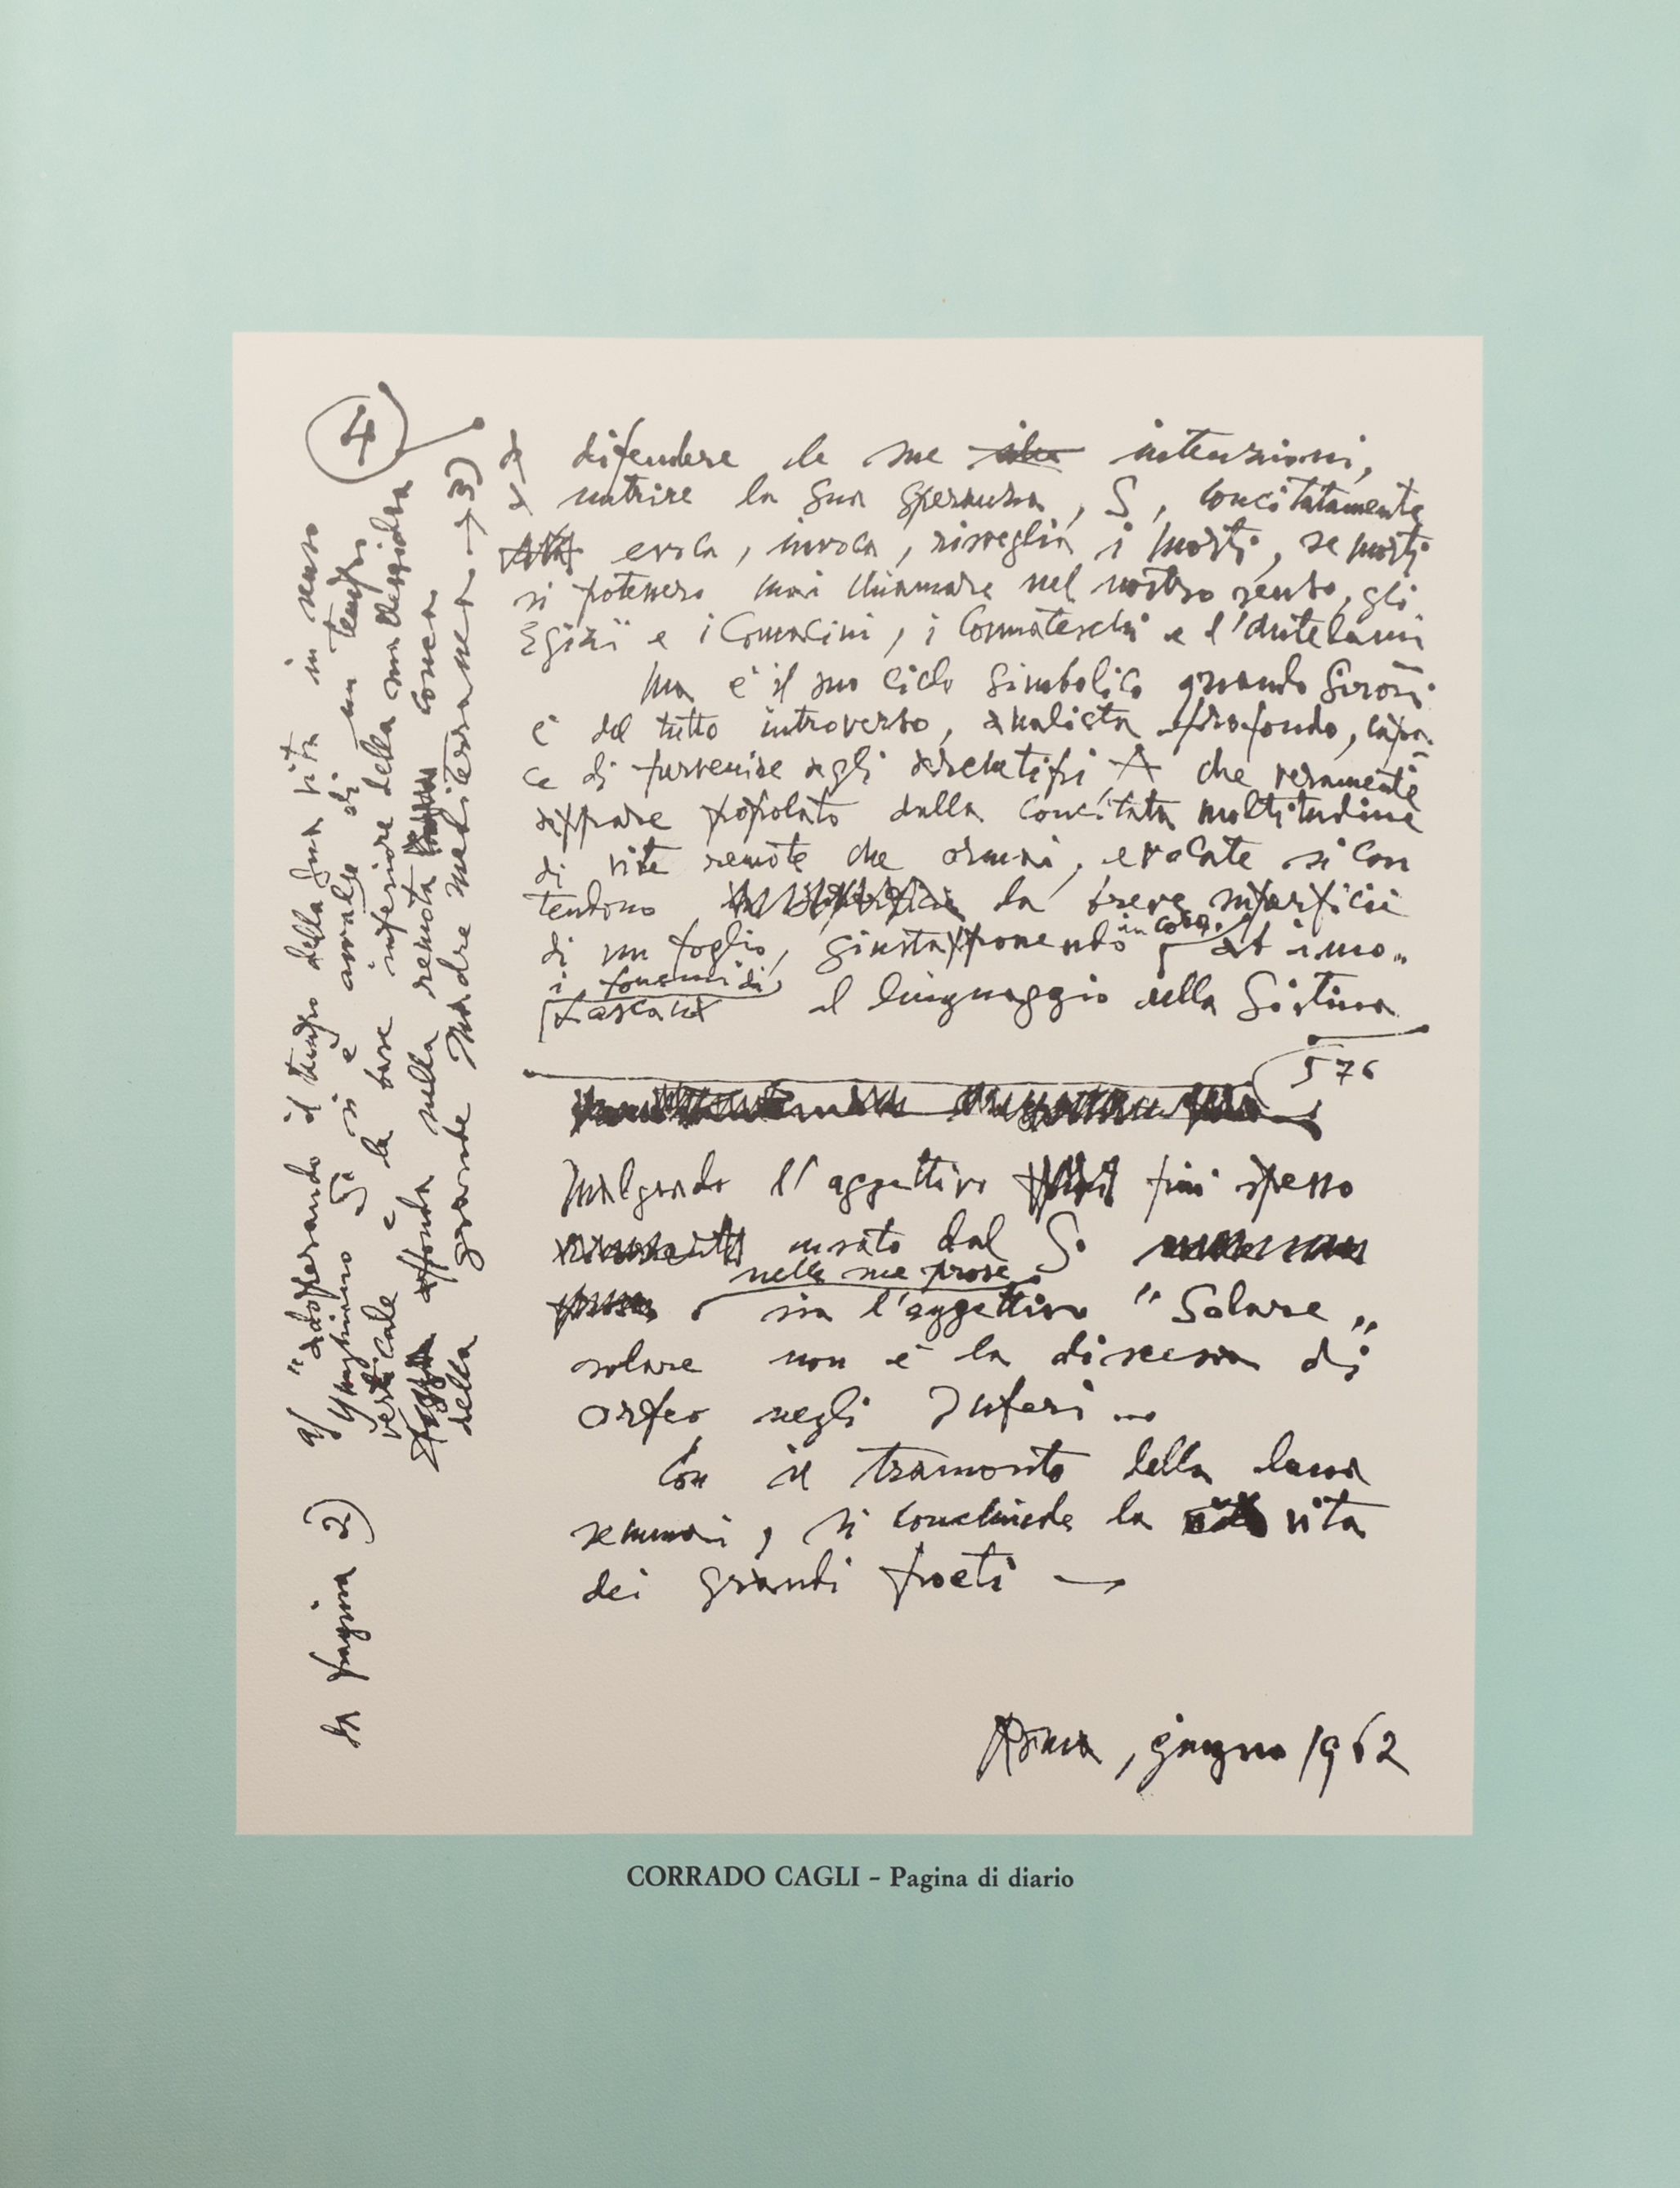 4
a difendere le sue intenzioni,
a nutrire la sua speranza, S, concitatamente
evoca, invoca, risveglia i morti, se morti
si potessero mai chiamare nel nostro senso, gli
Egizii e i Comacini, i Cosmateschi e l'Antelami
ma è il suo ciclo simbolico quando Sironi
è del tutto introverso, analista profondo, capa-
ce di pervenire agli archetipi A che veramente
appare popolato dalla concitata moltitudine
di vite remote che ormai, evocate si con
tendono la breve superficie
di un foglio, giustapponendo in cosa, at imo„
i fonemi di
Lascaux al linguaggio della Sistina
576
Malgrado l'aggettivo più spesso
usato dal S.
nelle sue prose
sia l'aggettivo "Solare„
solare non è la discesa di
Orfeo negli Inferi...
Con il tramonto della luna
semmai, si conchiude la vita
dei grandi poeti →
Roma, giugno 1962
da pagina 2)
a) "adoperando il tempo della sua vita in senso
verticale è la base inferiore della sua clessidra
affonda nella remota conca
della grande Madre mediterranea → 3)
CORRADO CAGLI – Pagina di diario